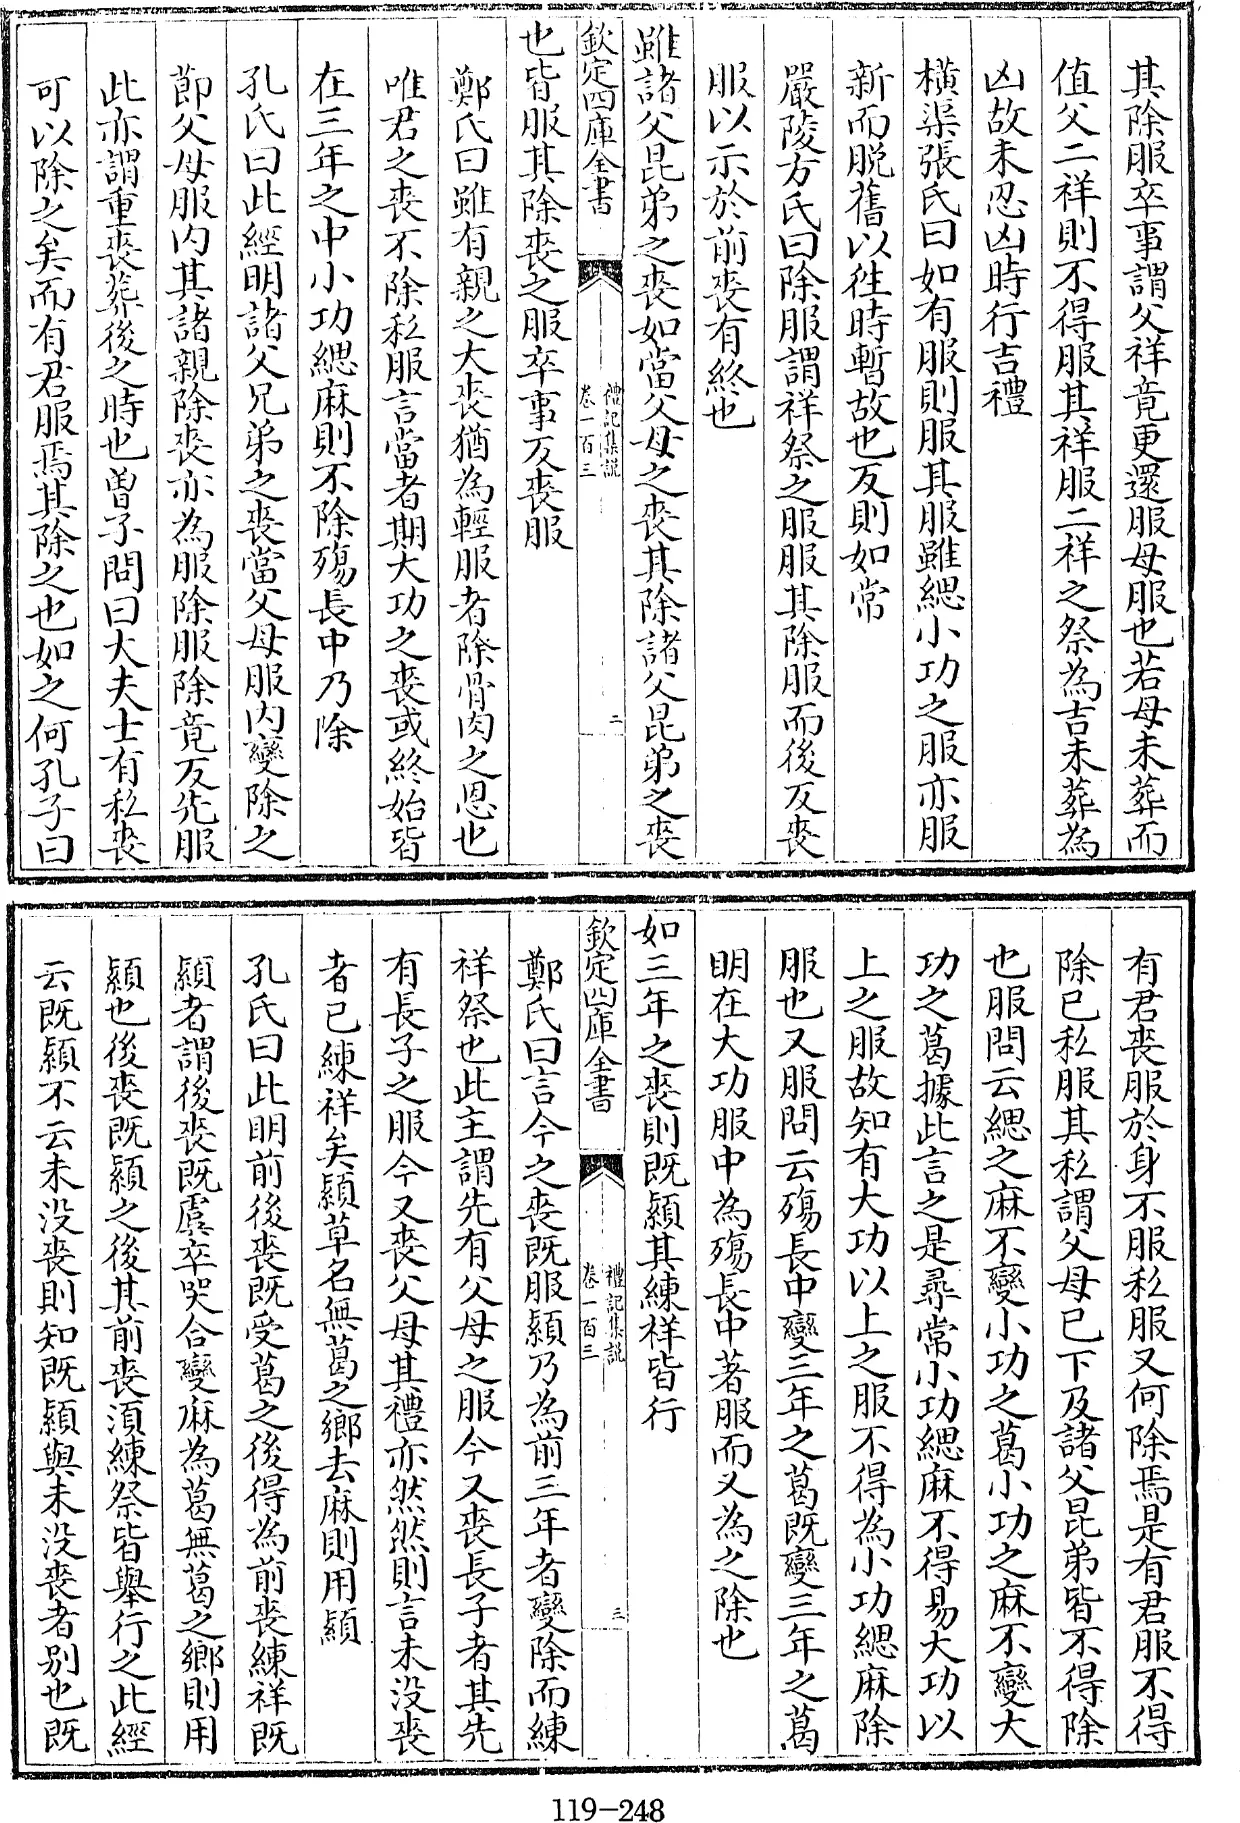 其除服卒事謂父祥竟更還服母服也若母未葬而
值父二祥則不得服其祥服二祥之祭為吉未葬為
凶故未忍凶時行吉禮
橫渠張氏曰如有服則服其服雖緦小功之服亦服
新而脱舊以徃時暫故也反則如常
嚴陵方氏曰除服謂祥祭之服服其除服而後反喪
服以示於前喪有終也
雖諸父昆弟之喪如當父母之喪其除諸父昆弟之喪
欽定四庫全書
禮記集說
卷一百三
二
也皆服其除喪之服卒事反喪服
鄭氏曰雖有親之大喪猶為輕服者除骨肉之恩也
唯君之喪不除私服言當者期大功之喪或終始皆
在三年之中小功緦麻則不除殤長中乃除
孔氏曰此經明諸父兄弟之喪當父母服内變除之
節父母服内其諸親除喪亦為服除服除竟反先服
此亦謂重喪葬後之時也曽子問曰大夫士有私喪
可以除之矣而有君服焉其除之也如之何孔子曰
有君喪服於身不服私服又何除焉是有君服不得
除已私服其私謂父母已下及諸父昆弟皆不得除
也服問云緦之麻不變小功之葛小功之麻不變大
功之葛據此言之是尋常小功緦麻不得易大功以
上之服故知有大功以上之服不得為小功緦麻除
服也又服問云殤長中變三年之葛既變三年之葛
明在大功服中為殤長中著服而又為之除也
如三年之喪則既顈其練祥皆行
欽定四庫全書
禮記集說
卷一百三
三
鄭氏曰言今之喪既服顈乃為前三年者變除而練
祥祭也此主謂先有父母之服今又喪長子者其先
有長子之服今又喪父母其禮亦然然則言未没喪
者已練祥矣顈草名無葛之鄉去麻則用顈
孔氏曰此明前後喪既受葛之後得為前喪練祥既
顈者謂後喪既虞卒哭合變麻為葛無葛之鄉則用
顈也後喪既顈之後其前喪湏練祭皆舉行之此經
云既顈不云未没喪則知既顈與未没喪者别也既
119-248